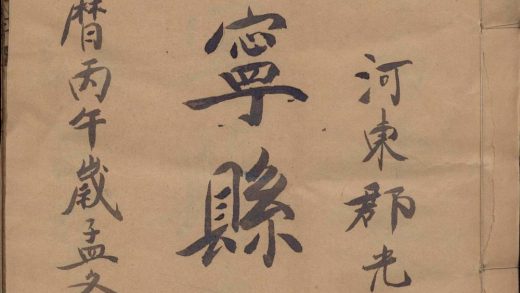 河東郡光
寧縣
曆丙午歲孟冬